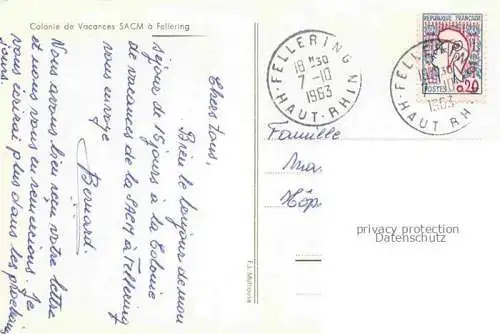 Colonie de Vacances SACM à Fellering
Chers tous,
Bien le bonjour de mon
séjour de 15 jours à la Colonie
de vacances de la SACM à Fellering
vous envoye
Bernard.
Nous avons bien reçu votre lettre
et nous vous en remercions. Je
vous écrirai plus dans les prochains
jours.
FELLERING
18 H30
7-10
1963
HAUT-RHIN
REPUBLIQUE FRANÇAISE
POSTES
0,20
FELLERING
1963
HAUT RH
Famille
Hôp
privacy protection
Datenschutz